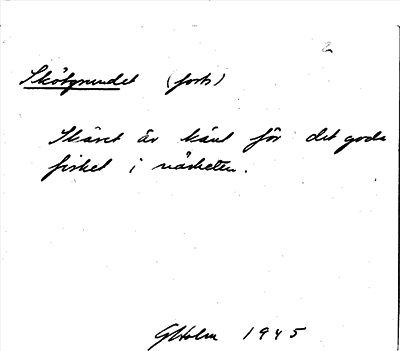 2
Skötgrundet (forts)
Skäret är känt för det goda
fisket i närheten.
GHolm 1945